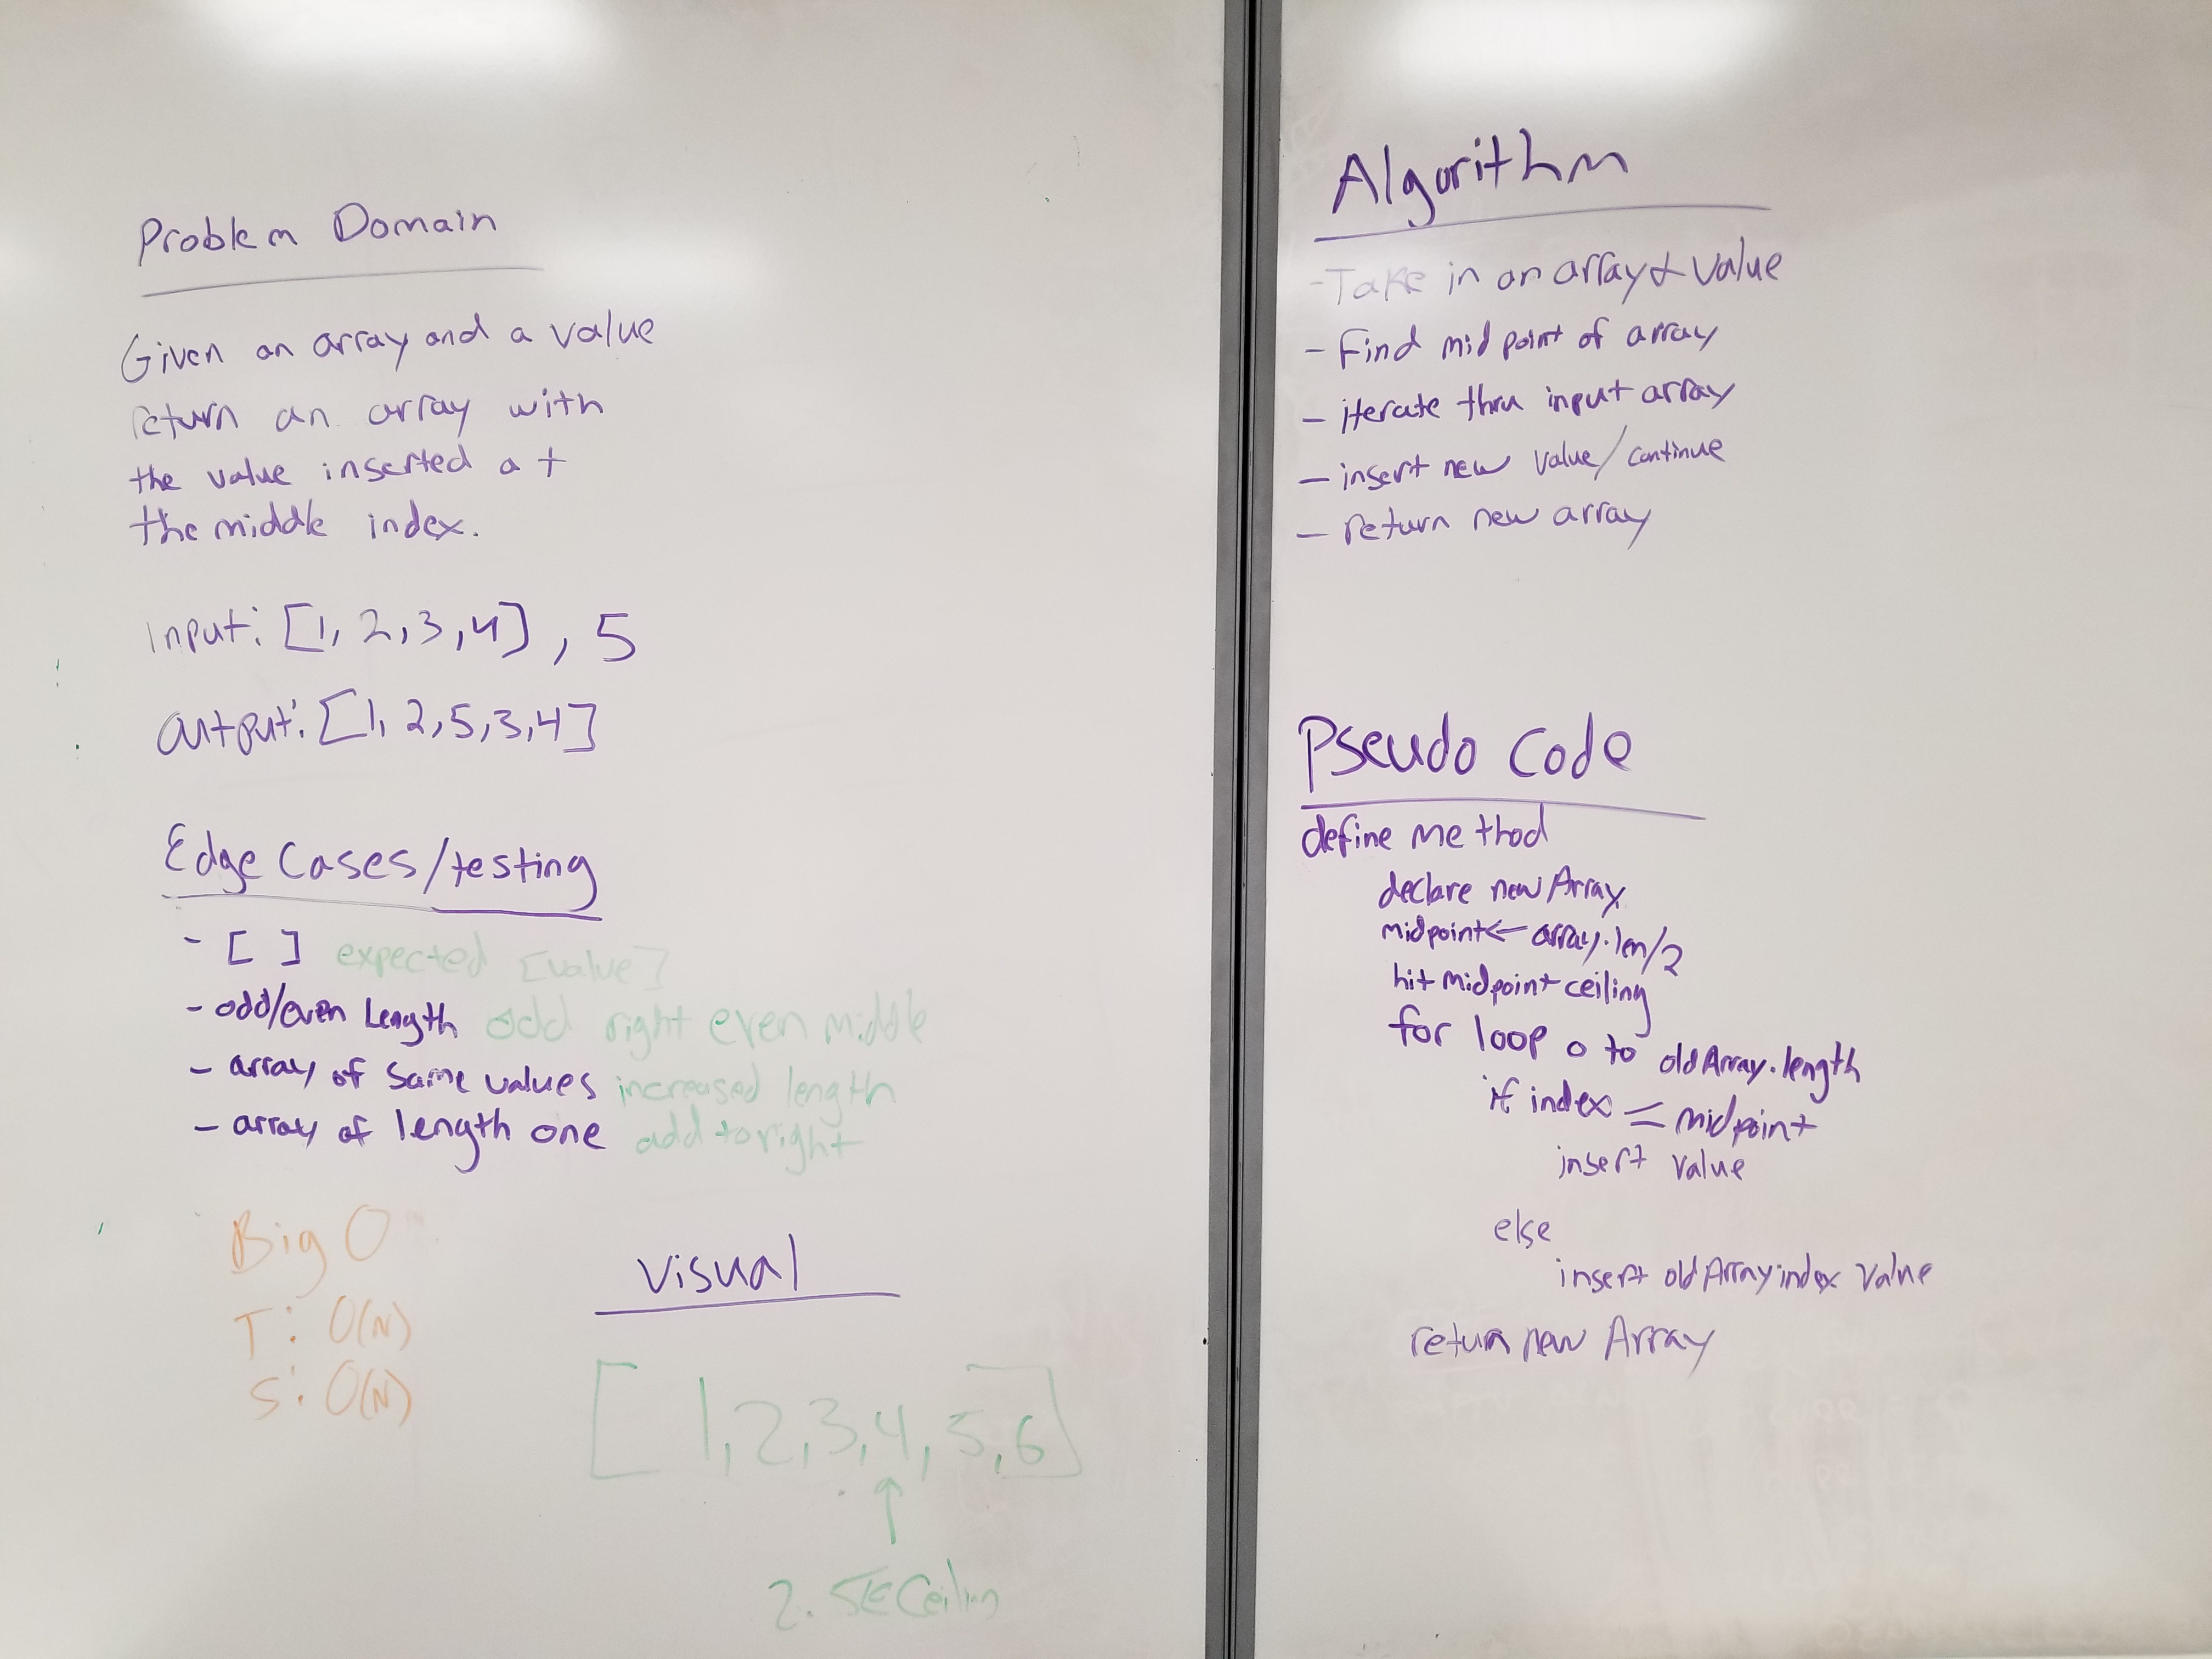 Problem Domain
Given an array and a value
return an array with
the value inserted at
the middle index.
input: [1, 2, 3, 4] , 5
output: [1, 2, 5, 3, 4]
Edge Cases/testing
- [ ] expected [value]
- odd/even Length odd right even middle
- array of same values increased length
- array of length one add to right
Big O
T: O(N)
S: O(N)
Visual
[ 1, 2, 3, 4, 5, 6]
↑
2.5 ← Ceilin
Algorithm
- Take in an array & value
- Find mid point of array
- iterate thru input array
- insert new value/continue
- return new array
Pseudo Code
define method
declare newArray
midpoint ← array.len/2
hit midpoint ceiling
for loop 0 to oldArray.length
if index = midpoint
insert value
else
insert oldArray index value
return new Array